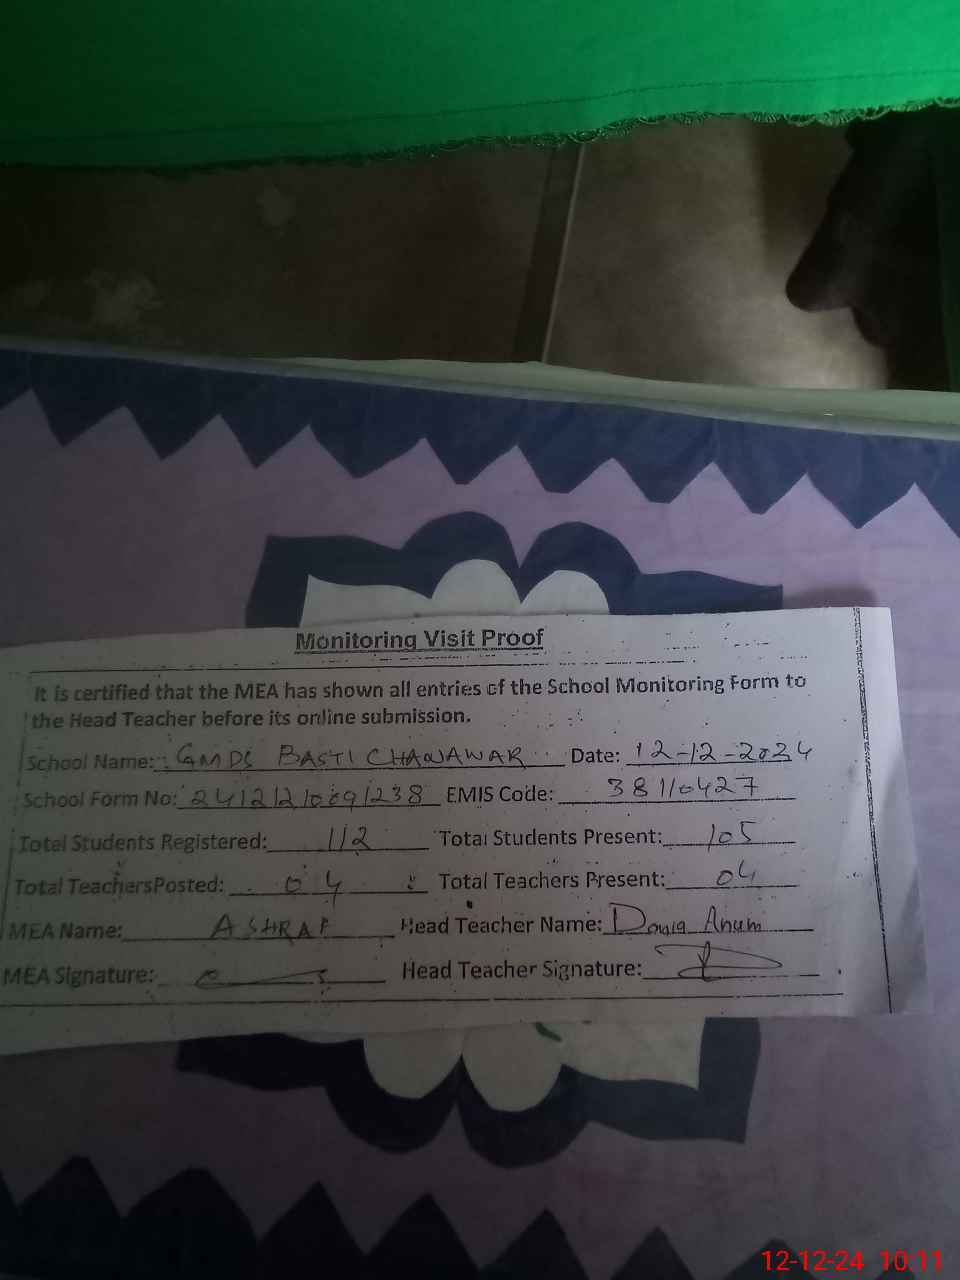 Monitoring Visit Proof
It is certified that the MEA has shown all entries of the School Monitoring Form to
the Head Teacher before its online submission.
School Name: GMDS BASTI CHANAWAR Date: 12-12-2024
School Form No: EMIS Code: 38110427
Total Students Registered: 112 Total Students Present: 105
Total TeachersPosted: 04 Total Teachers Present: 04
MEA Name: ASHRAF Head Teacher Name: Anum
MEA Signature: Head Teacher Signature:
12-12-24 10:11